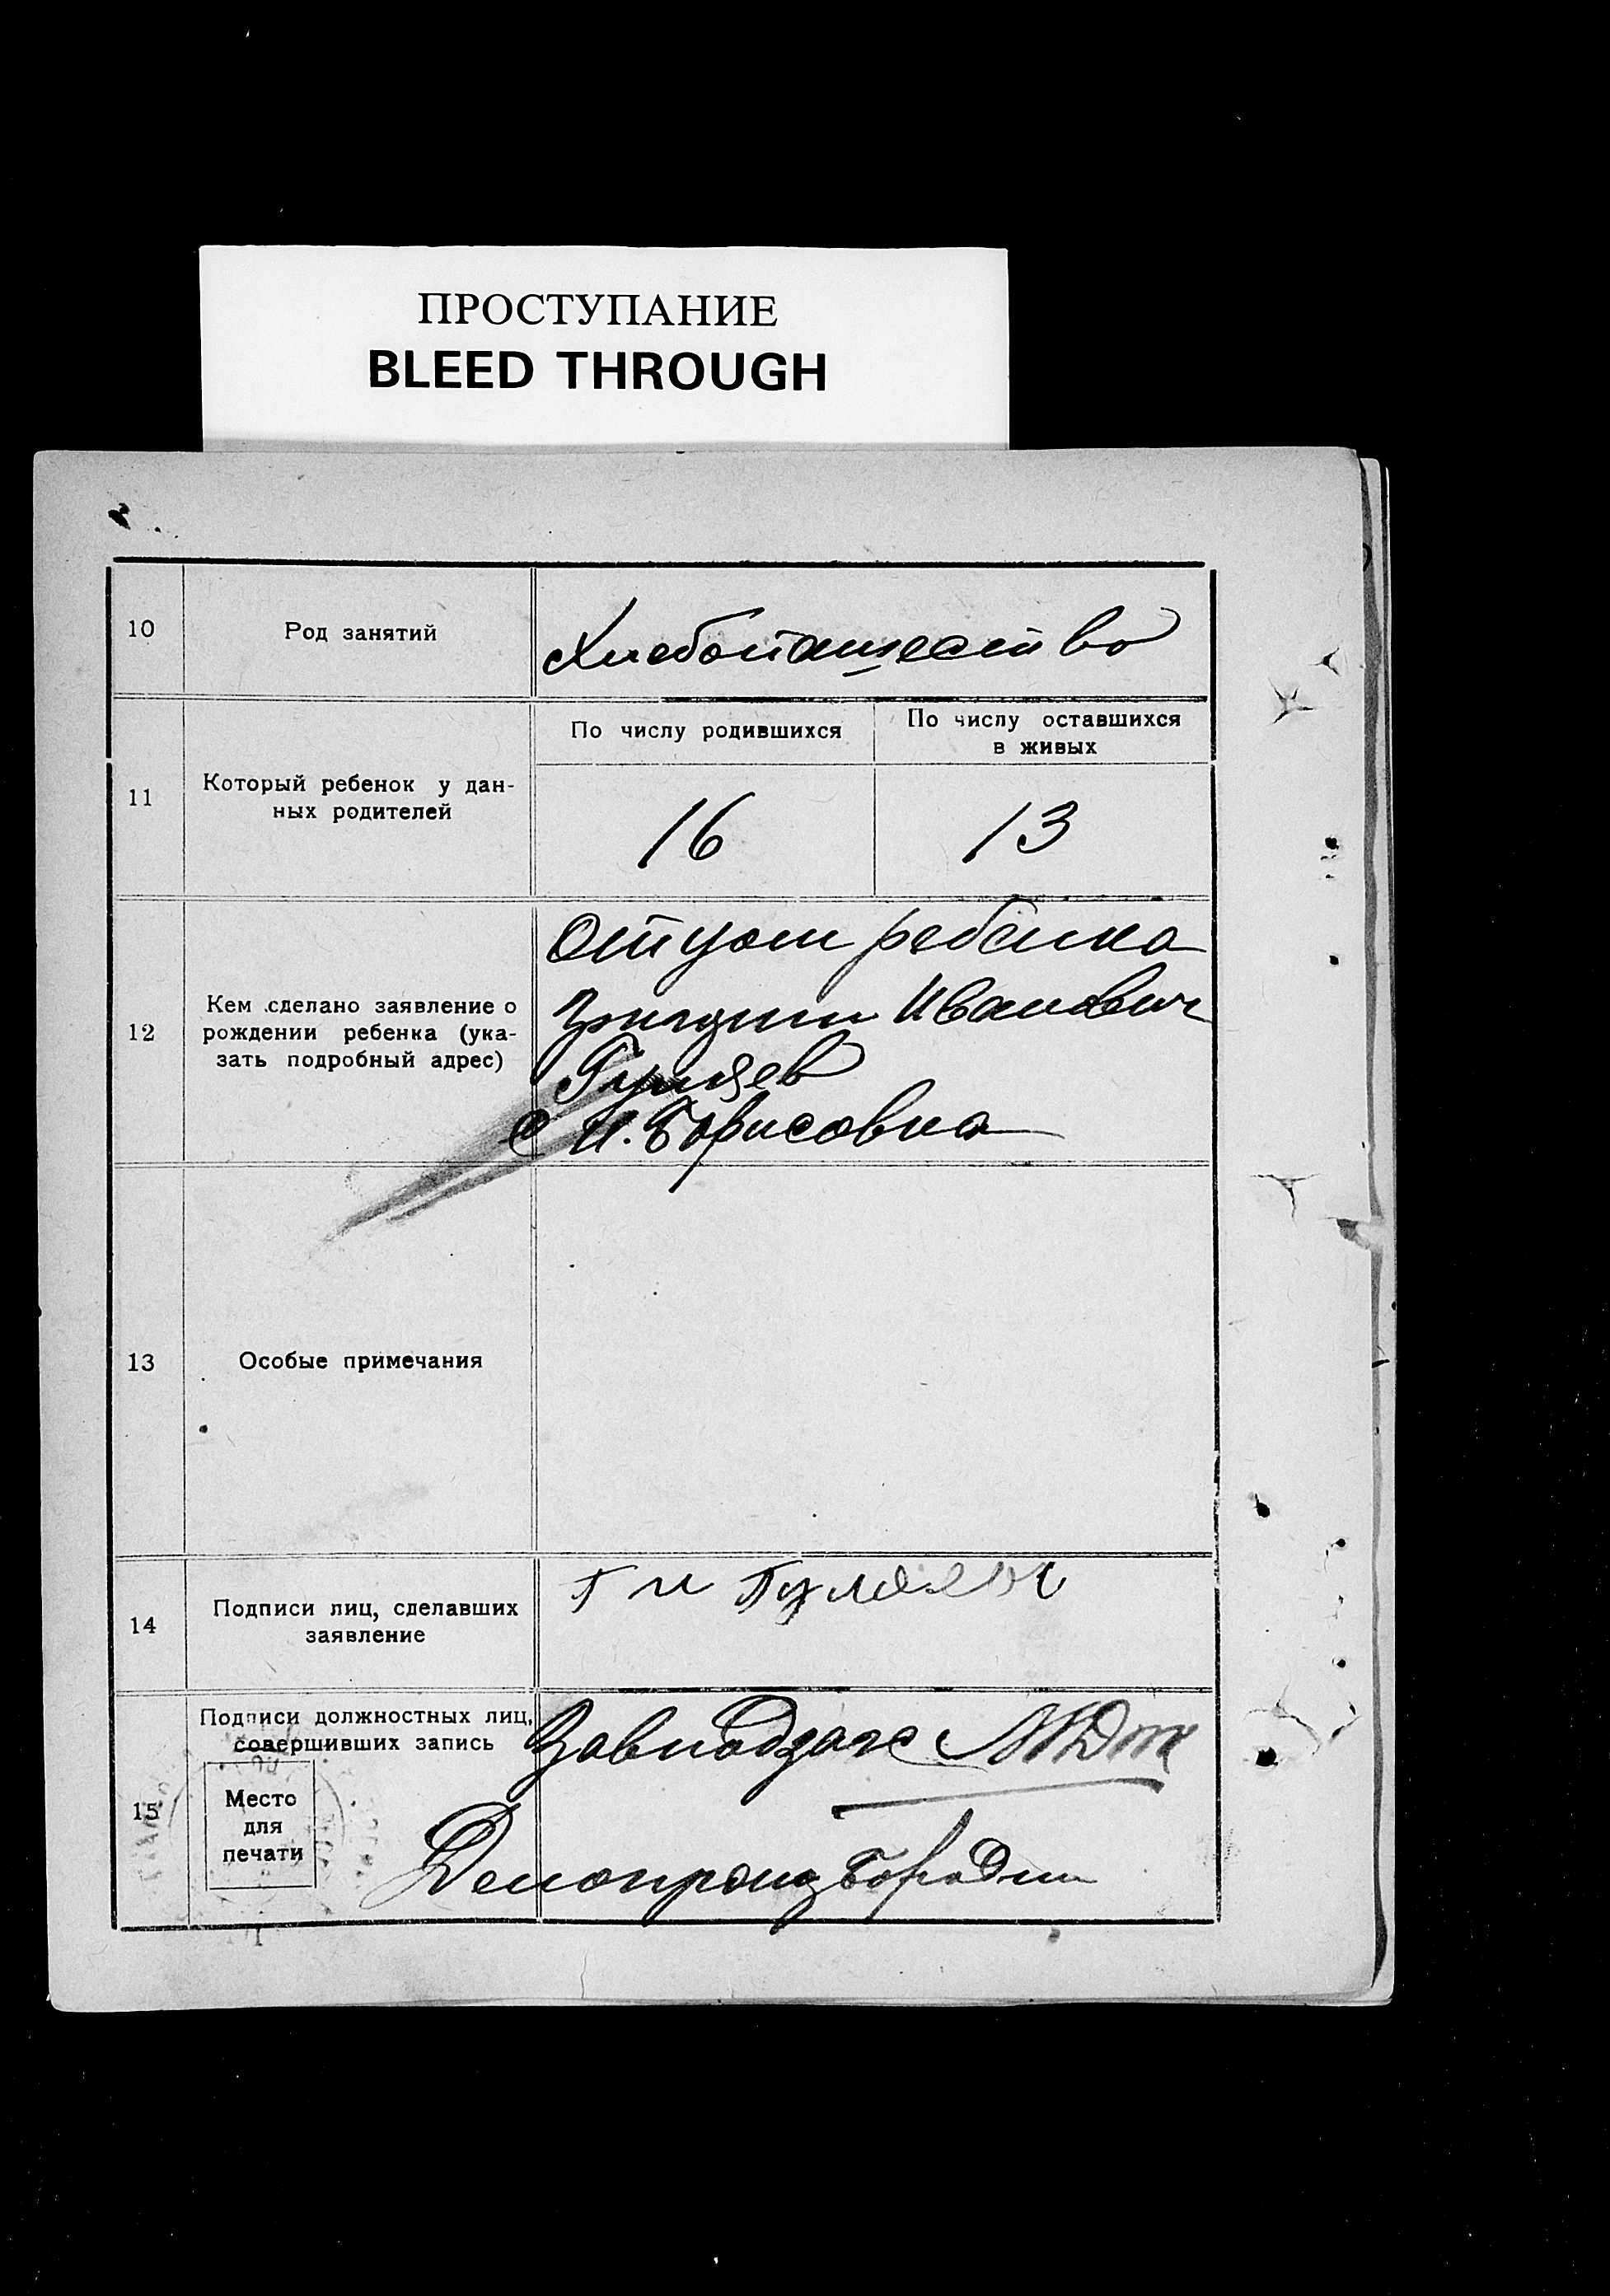 ПРОСТУПАНИЕ
BLEED THROUGH
10
Род занятий
Хлебопашество
11
Который ребенок у дан-
ных родителей
По числу родившихся
По числу оставшихся
в живых
16
13
12
Кем сделано заявление о
рождении ребенка (ука-
зать подробный адрес)
Отцом ребенка
Иванович
с Н. Борисовка
13
Особые примечания
14
Подписи лиц, сделавших
заявление
Г И
15
Подписи должностных лиц,
совершивших запись
Место
для
печати
Завподзагс
Делопроиз Бородин